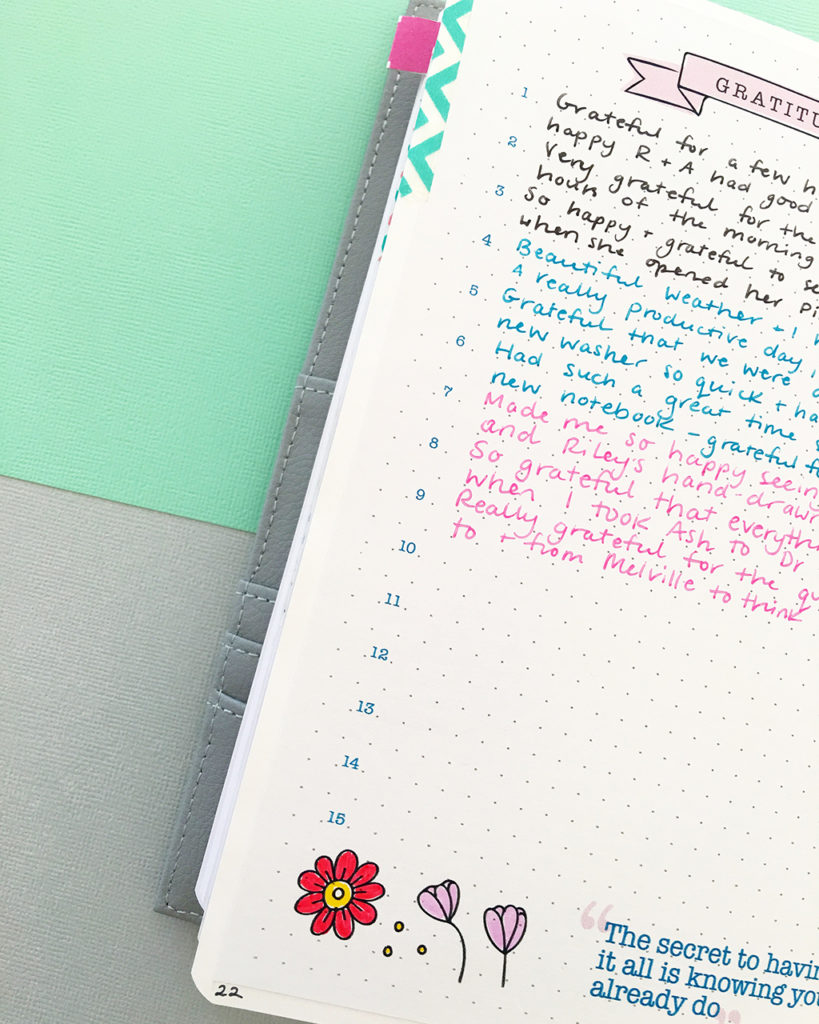 GRATITU
1 Grateful for a few h
happy R + A had good
2 Very grateful for the
hours of the morning
3 So happy + grateful to se
when she opened her pi
4 Beautiful weather + I h
A really productive day.
5 Grateful that we were a
new washer so quick + ha
6 Had such a great time s
new notebook - grateful fo
7 Made me so happy seein
and Riley's hand-drawn
8 So grateful that everythi
when I took Ash to Dr
9 Really grateful for the qu
to + from Melville to think
10
11
12
13
14
15
“The secret to havin
it all is knowing you
already do”
22